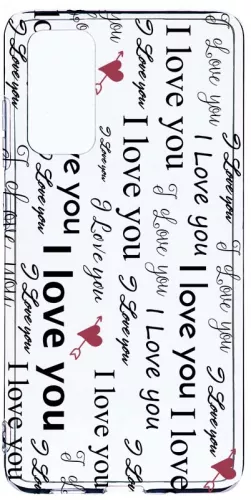 I Love you I Love you I Love you
I Love you I Love you
I love you I love you I love
I Love you I Love you I Love you
I Love you I Love you
I love you I love you
I Love you I Love you I Love
I Love you I Love you
ve you I love you
I Love you I Love you I Love you
I Love you
I love you